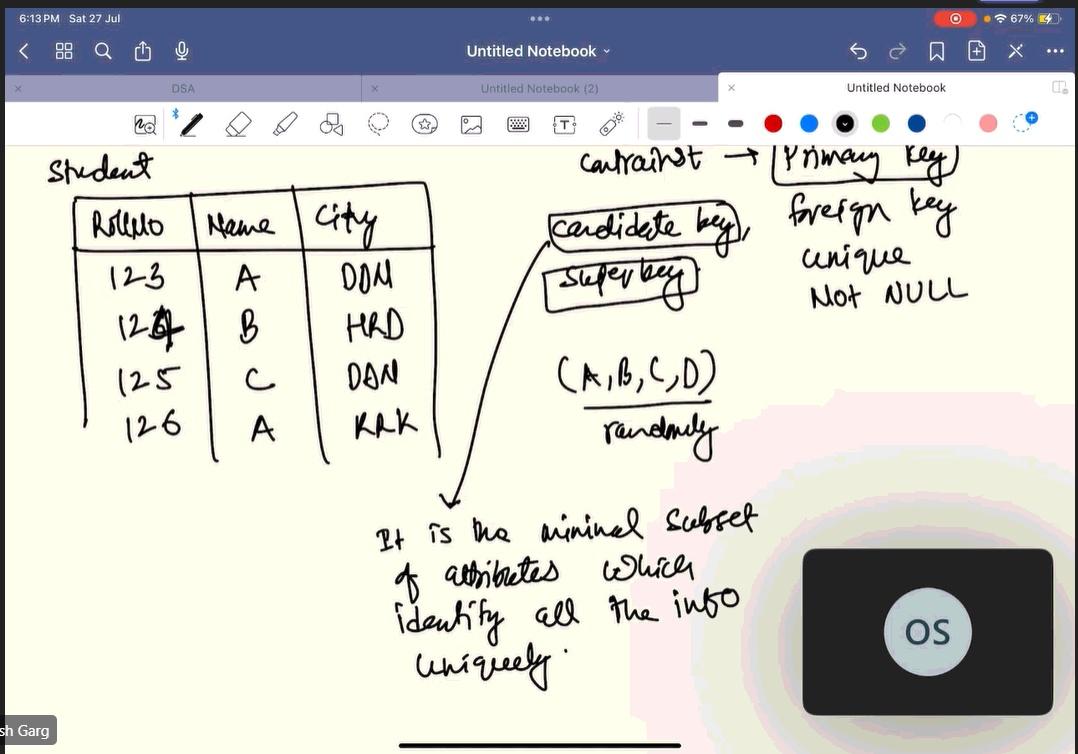 6:13 PM Sat 27 Jul
67%
Untitled Notebook
DSA
Untitled Notebook (2)
Untitled Notebook
Student
RollNo Name City
123 A DDN
124 B HRD
125 C DDN
126 A RRK
contrainst → Primary key
candidate key,
super key
foreign key
unique
Not NULL
(A, B, C, D)
randomly
It is the minimal subset
of attributes which
identify all the info
uniquely.
OS
sh Garg